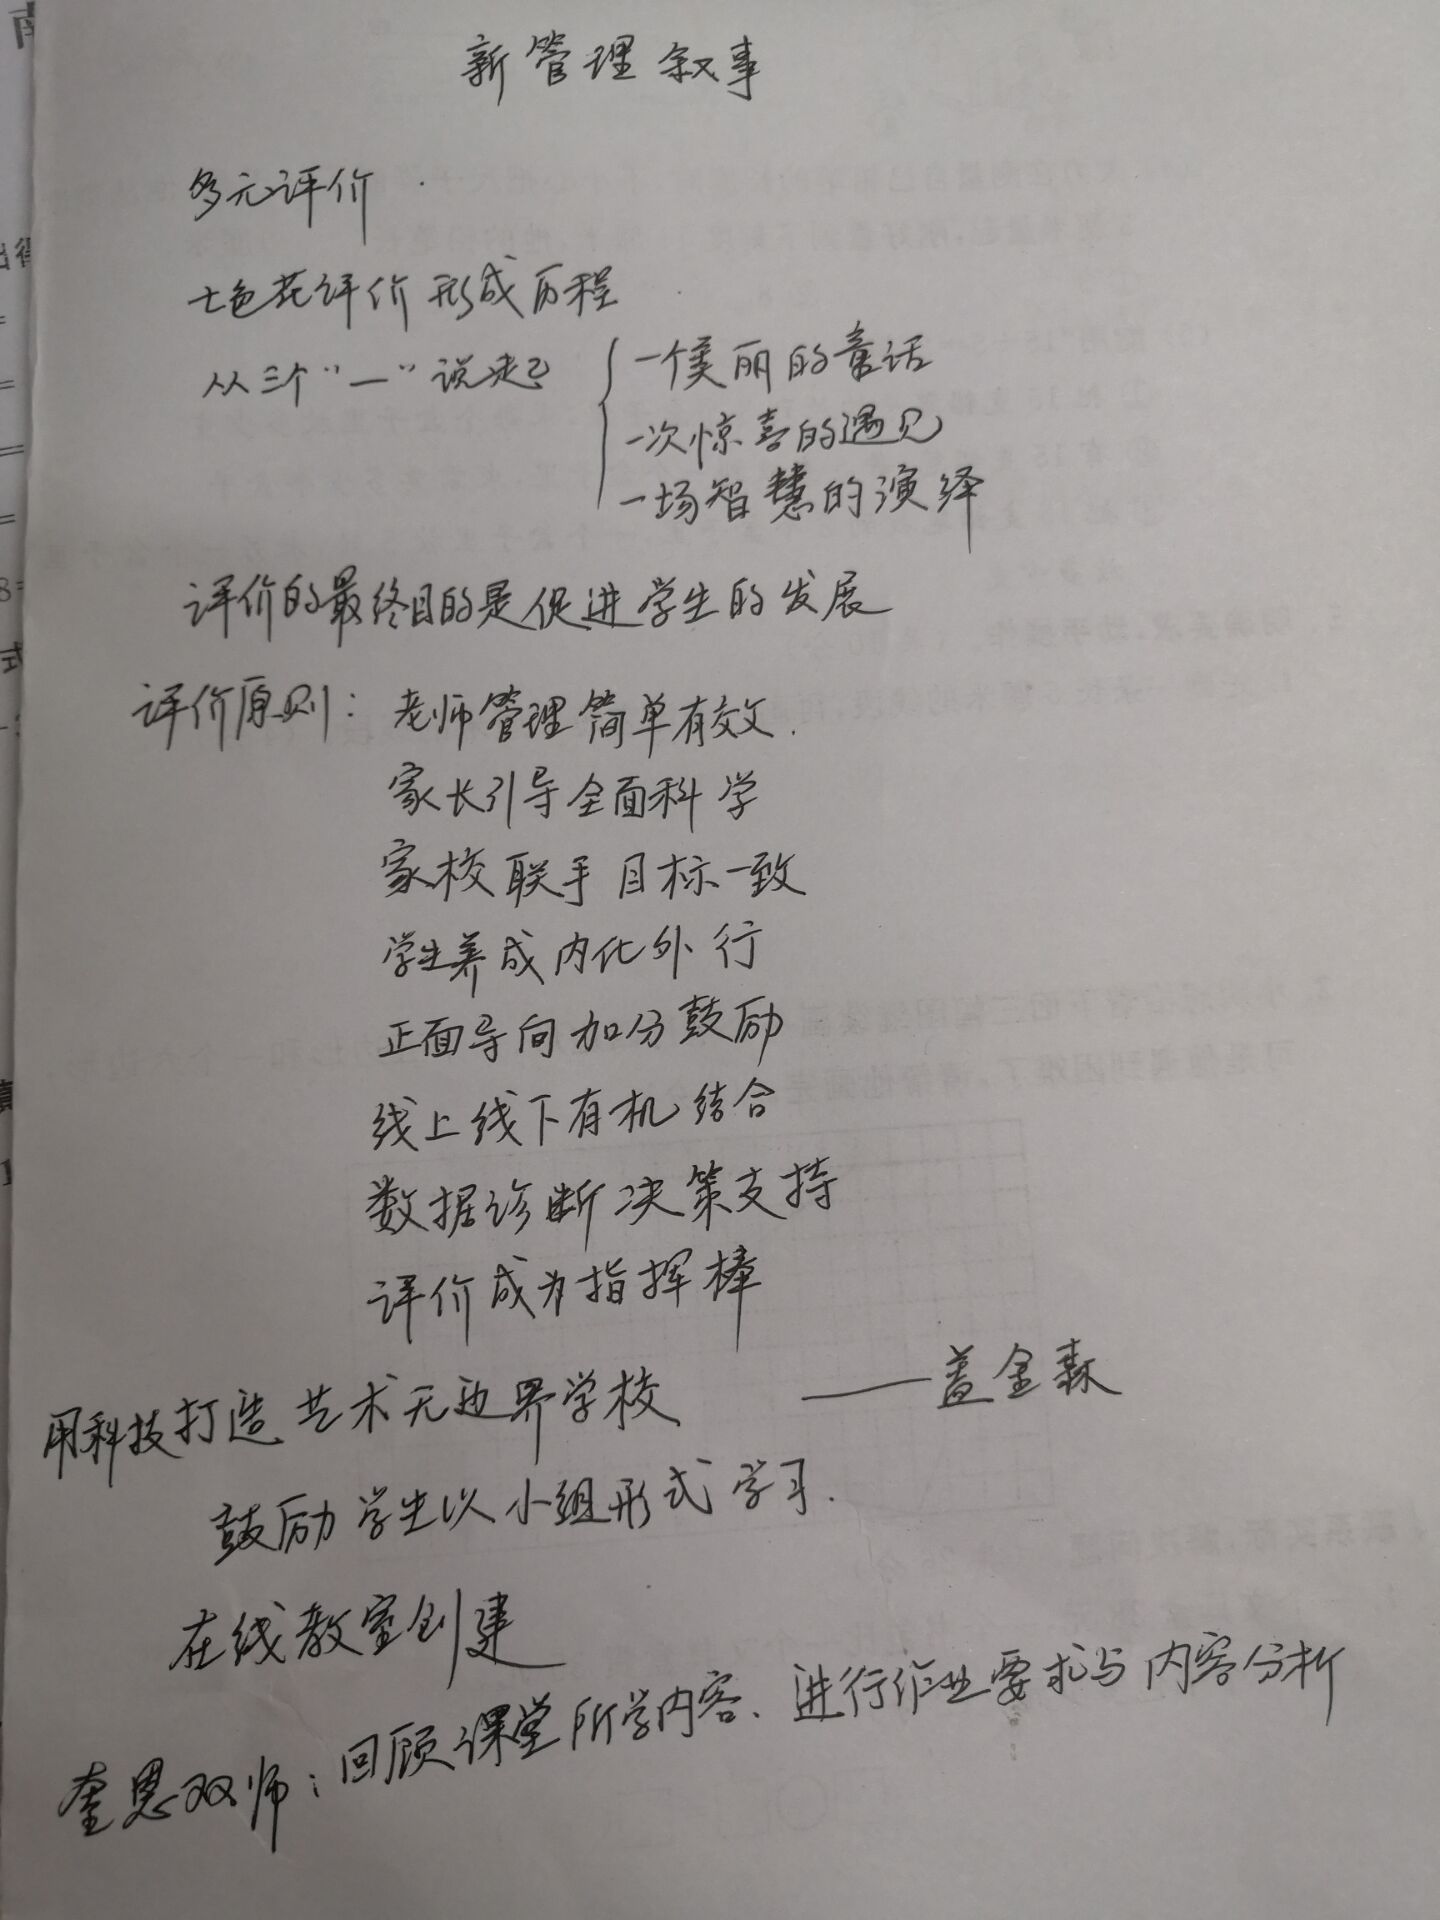 新管理叙事
多元评价
七色花评价形成历程
从三个“一”说起
一个美丽的童话
一次惊喜的遇见
一场智慧的演绎
评价的最终目的是促进学生的发展
评价原则：老师管理简单有效.
家长引导全面科学
家校联手目标一致
学生养成内化外行
正面导向加分鼓励
线上线下有机结合
数据诊断决策支持
评价成为指挥棒
——盖金森
用科技打造艺术无边界学校
鼓励学生以小组形式学习.
在线教室创建
奎恩双师：回顾课堂所学内容、进行作业要求与内容分析